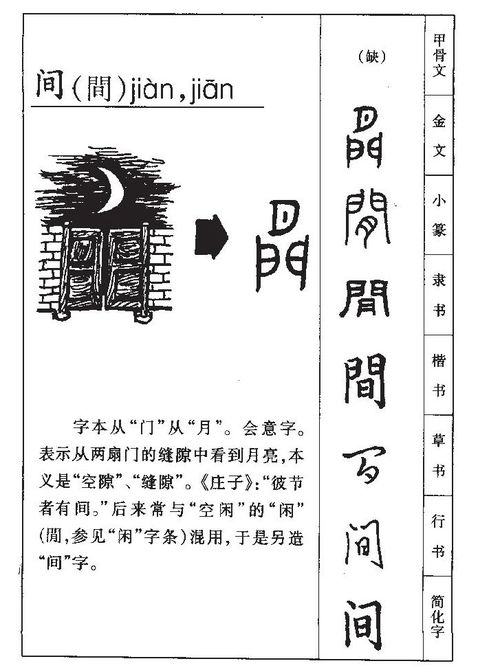 间(間)jiàn,jiān
字本从“门”从“月”。会意字。
表示从两扇门的缝隙中看到月亮,本
义是“空隙”、“缝隙”。《庄子》:“彼节
者有间。”后来常与“空闲”的“闲”
(閒,参见“闲”字条)混用,于是另造
“间”字。
(缺)
閒
閒
閒
間
间
间
间
甲骨文
金文
小篆
隶书
楷书
草书
行书
简化字